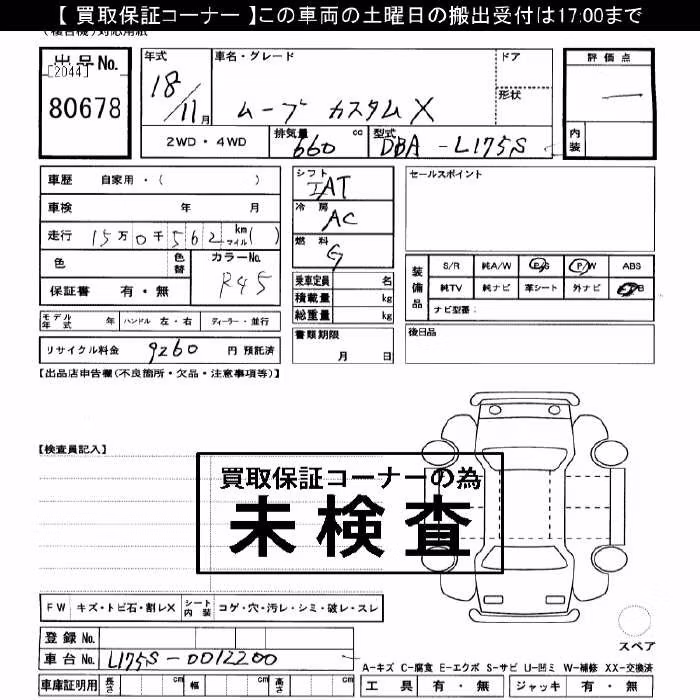 【 買取保証コーナー 】この車両の土曜日の搬出受付は17:00まで
出品No.
[2044]
80678
年式
18/11月
車名・グレード
ムーブ カスタムX
ドア
形状
評価点
内装
2WD・4WD
排気量 660 cc
型式 DBA-L175S
車歴 自家用・( )
車検 年 月
走行 15万0千562 km マイル( )
色
色替
カラーNo.
R45
保証書 有・無
シフト
IAT
冷房
AC
燃料
G
乗車定員 名
積載量 kg
総重量 kg
セールスポイント
装備品
S/R 純A/W P/S P/W ABS
純TV 純ナビ 革シート 外ナビ
ナビ型番:
モデル年式 年 ハンドル 左・右 ディーラー・並行
リサイクル料金 9260 円 預託済
書類期限
月 日
後日品
【出品店申告欄(不良箇所・欠品・注意事項等)】
【検査員記入】
買取保証コーナーの為
未検査
FW キズ・トビ石・割レX シート内装 コゲ・穴・汚レ・シミ・破レ・スレ
登録No.
車台No. L175S-0012200
スペア
A-キズ C-腐食 E-エクボ S-サビ U-凹ミ W-補修 XX-交換済
車庫証明用 長さ cm 幅 cm 高さ cm
工具 有・無 ジャッキ 有・無